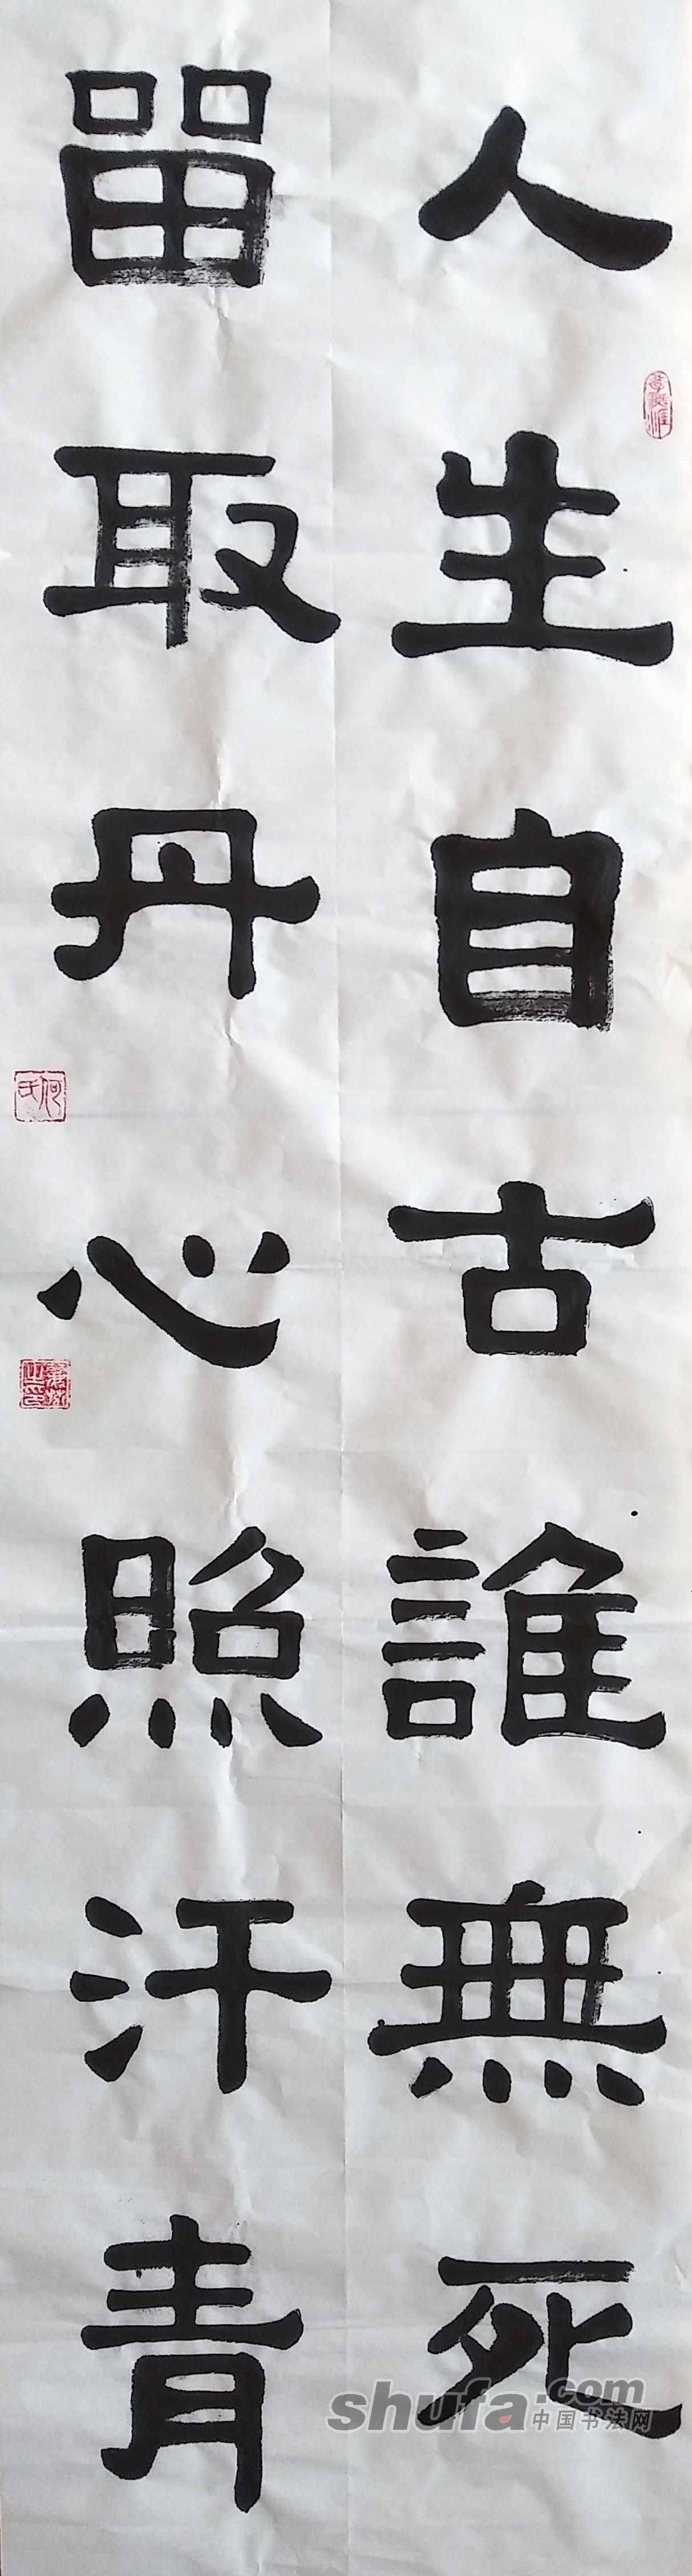 人生自古誰無死
畱取丹心照汗青
何氏
shufa.com
中国书法网